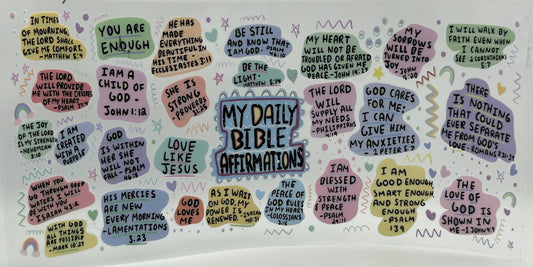 IN TIMES
OF MOURNING,
THE LORD SHALL
GIVE ME COMFORT.
- MATTHEW 5:4
YOU ARE
ENOUGH
HE HAS
MADE
EVERYTHING
BEAUTIFUL IN
HIS TIME -
ECCLESIASTES 3:11
BE STILL
AND KNOW THAT
I AM GOD - PSALM
46:10
MY HEART
WILL NOT BE
TROUBLED OR AFRAID
GOD HAS GIVEN ME
PEACE - JOHN 14:27
MY
SORROWS
WILL BE
TURNED INTO
JOY - JOHN
I WILL WALK BY
FAITH EVEN WHEN
I CANNOT
SEE 2 CORINTHIANS
5:7
THE LORD
WILL PROVIDE
ME WITH THE DESIRES
OF MY HEART.
- PSALM
I AM A
CHILD OF
GOD -
JOHN 1:12
SHE IS
STRONG -
PROVERBS
BE THE
LIGHT - MATTHEW
5:14
THE LORD
WILL
SUPPLY ALL
MY NEEDS
- PHILIPPIANS
GOD CARES
FOR ME;
I CAN
GIVE HIM
MY ANXIETIES
- 1 PETER 5:7
THERE
IS NOTHING
THAT COULD
EVER SEPARATE
ME FROM GOD'S
LOVE - ROMANS
THE JOY
OF THE LORD
IS MY STRENGTH
- NEHEMIAH
8:10
I AM
CREATED
WITH A
PURPOSE
GOD
IS WITHIN
HER SHE
WILL NOT
FALL - PSALM
46:5
LOVE
LIKE
JESUS
MY DAILY
BIBLE
AFFIRMATIONS
WHEN YOU
GO THROUGH DEEP
WATERS I WILL
BE WITH YOU
- ISAIAH 43:2
HIS MERCIES
ARE NEW
EVERY MORNING
- LAMENTATIONS
3:23
GOD
LOVES
ME
AS I WAIT
ON GOD, MY
POWER IS
RENEWED. - ISAIAH
THE
PEACE OF
GOD RULES
IN MY HEART
- COLOSSIANS
I AM
BLESSED
WITH
STRENGTH
PEACE
- PSALM
29:11
I AM
GOOD ENOUGH
SMART ENOUGH
AND STRONG
ENOUGH
- PSALM
139
THE
LOVE OF
GOD IS
SHOWN IN
ME - 1 JOHN
WITH GOD
ALL THINGS
ARE POSSIBLE
- MARK 10:27